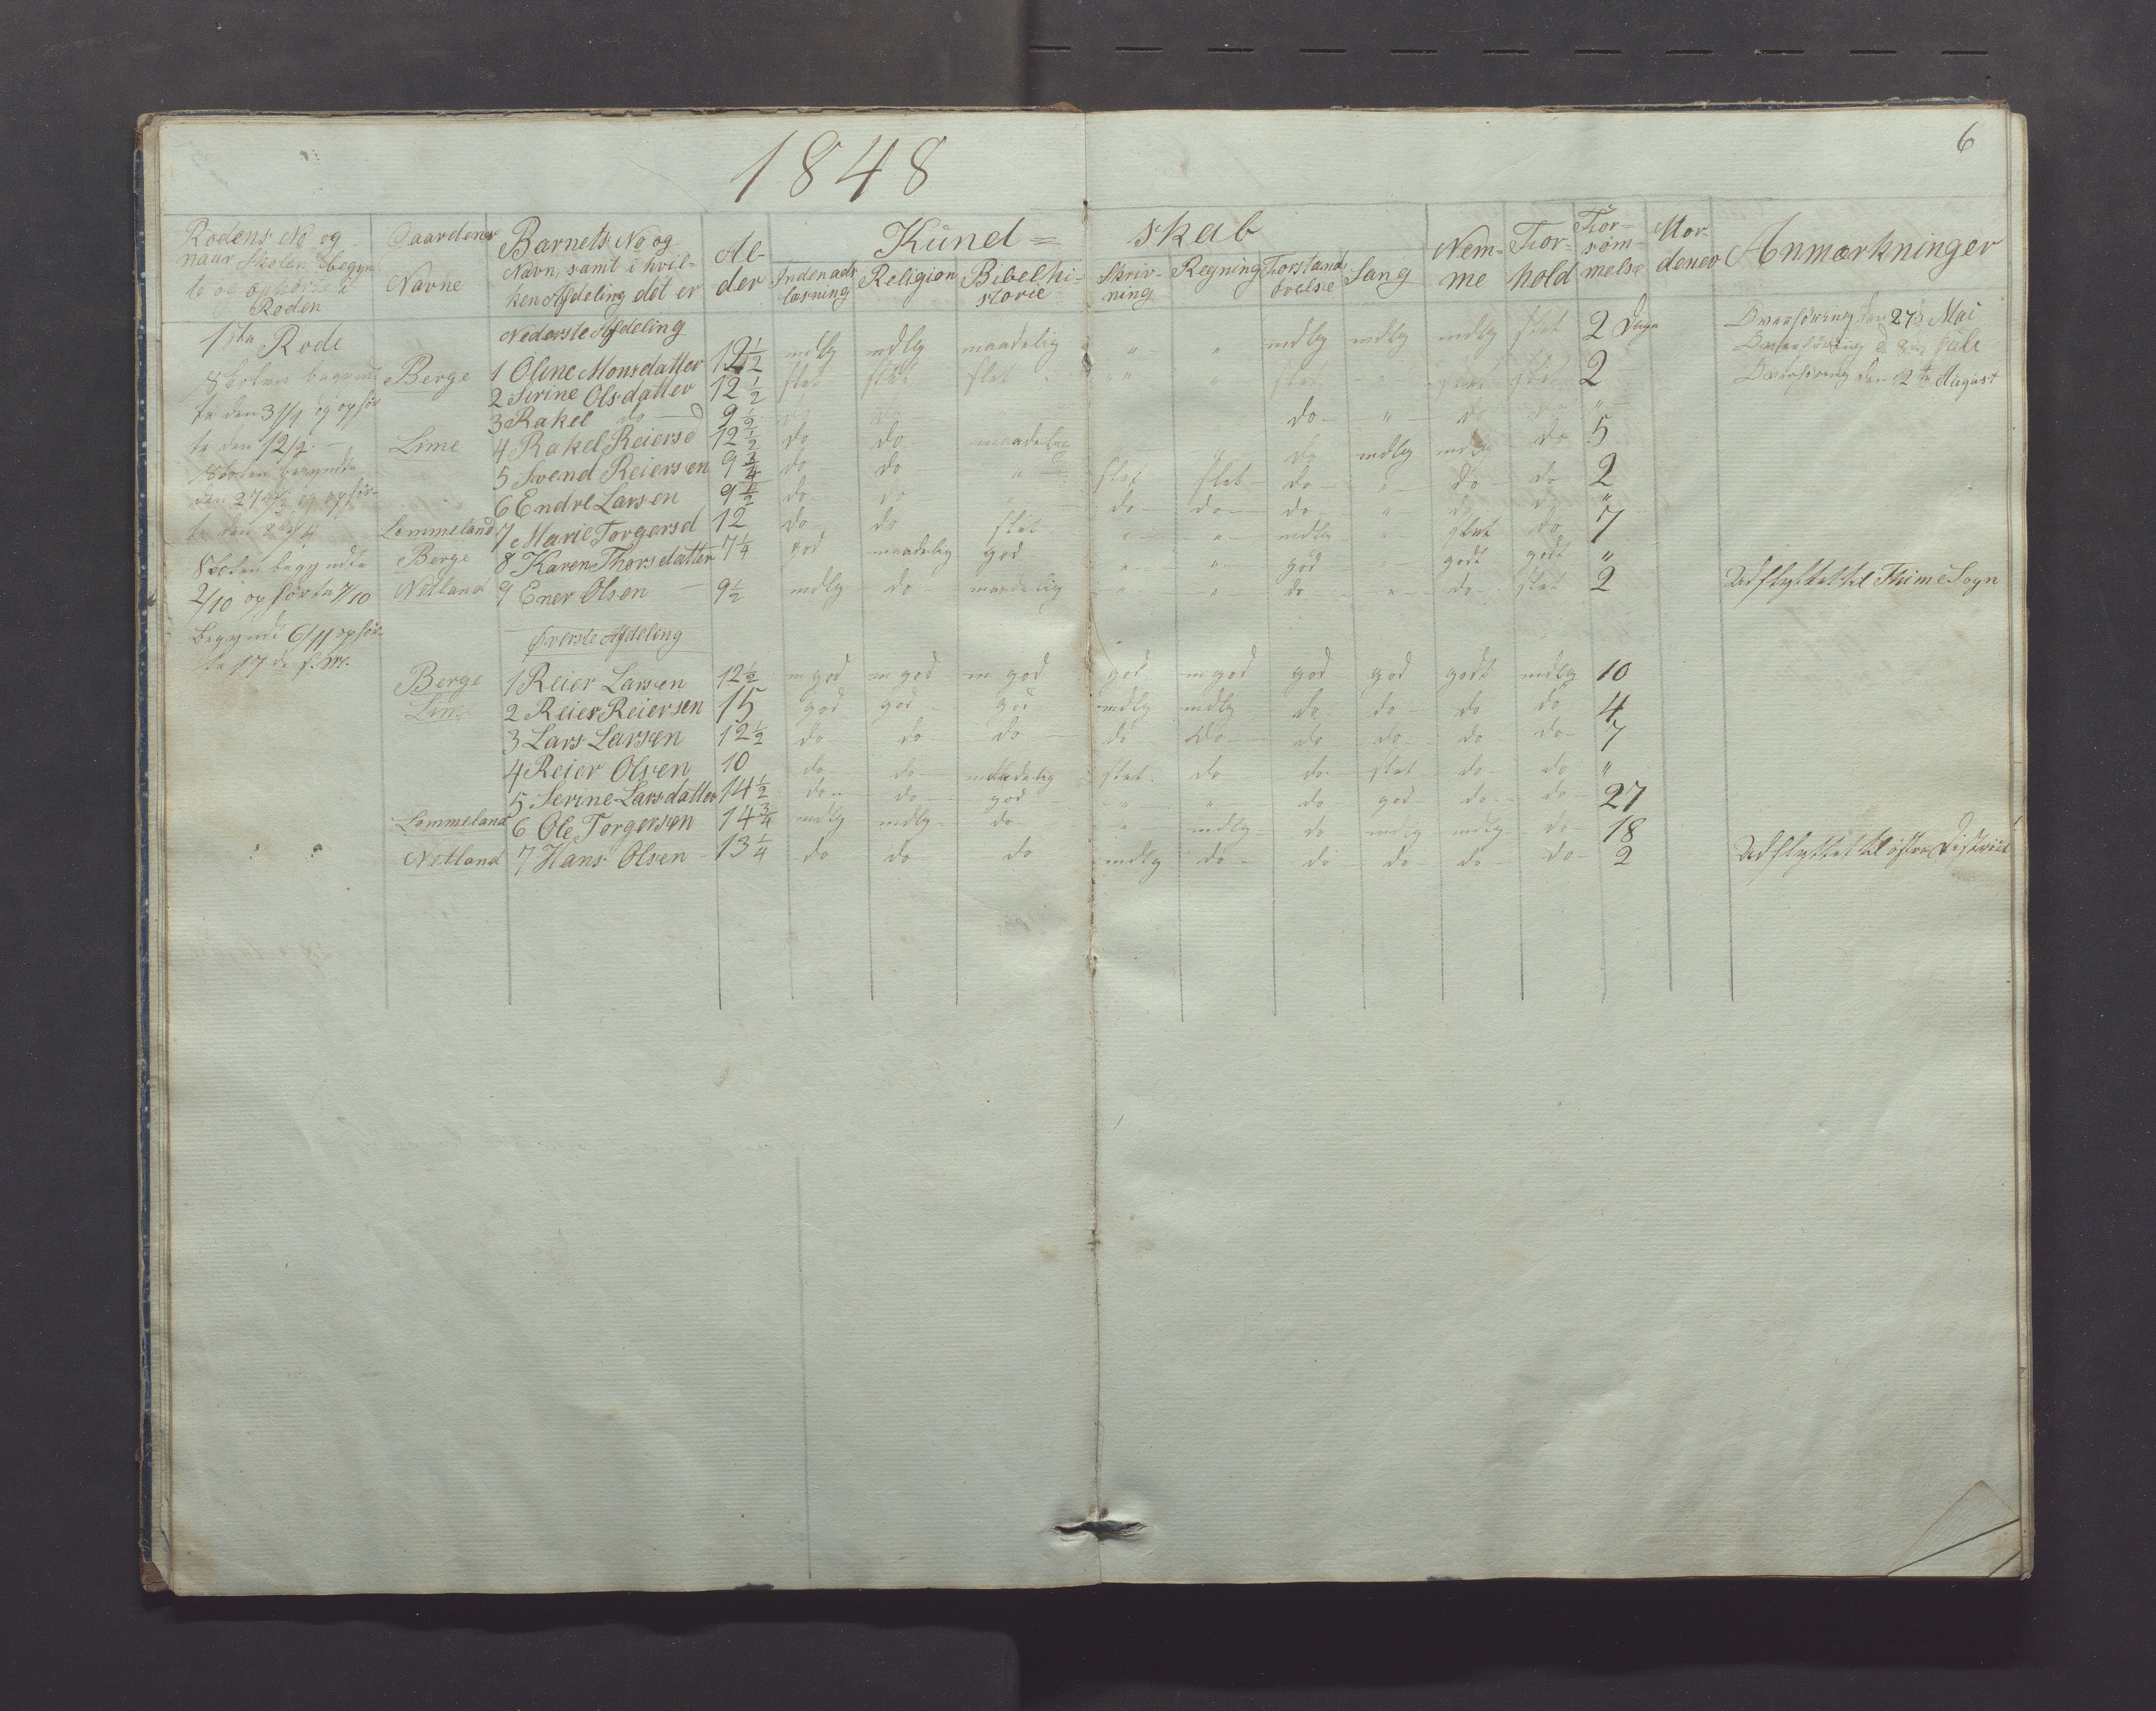 1848
6
Rodens No og naar Skolen begyndte og ophørte i Roden | Gaardenes Navne | Barnets No og Navn, samt i hvilken Afdeling det er | Alder | Kundskab: Indenadslæsning | Religion | Bibelhistorie | Skrivning | Regning | Forstandsøvelse | Sang | Nemme | Forhold | Forsømmelse | Moderer | Anmærkninger
1ste Rode
Skolen begyndte den 31/1 og ophørte den 12/2.
Skolen begyndte den 27de/3 og ophørte den 8de/4
Skolen begyndte 2/10 ophørte 7/10
begyndt 6/11 ophørte 17de s.m.
Nederste Afdeling
Berge 1 Oline Monsdatter 12 1/2 mdlg mdlg maadelig " " mdlg mdlg mdlg slet 2 Dage
Overhøring den 27de Mai
2 Sirine Olsdatter 12 1/2 slet slet slet " " slet slet slet 2
Overhøring d. 8de Juli
3 Rakel do 9 1/2 do do do " do do "
Overhøring den 12te August
Lime 4 Rakel Reiersd 12 1/2 do do maadelig do mdlg mdlg do 5
5 Svend Reiersen 9 3/4 do do " slet slet do " do do 2
6 Endre Larsen 9 1/2 do do do do do " do do "
Lommeland 7 Marie Torgersd 12 do do slet " " mdlg " slet do 7
Berge 8 Karen Thorsdatter 7 1/4 god maadelig god " " god godt godt "
Netland 9 Ener Olsen 9 1/2 mdlg do maadelig " " do " do slet 2 Udflyttet til Thime Sogn
Øverste Afdeling
Berge 1 Reier Larsen 12 1/2 m god m god m god god m god god god godt mdlg 10
Lime 2 Reier Reiersen 15 god god god mdlg mdlg do do do do 4
3 Lars Larsen 12 1/2 do do do do do do do do do 7
4 Reier Olsen 10 do do maadelig slet do do slet do do "
5 Serine Larsdatter 14 1/2 do do god " " do god do do 27
Lommeland 6 Ole Torgersen 14 3/4 mdlg mdlg do " mdlg do mdlg mdlg do 18
Netland 7 Hans Olsen 13 1/4 do do do mdlg do do do do do 2 Udflyttet til østre District